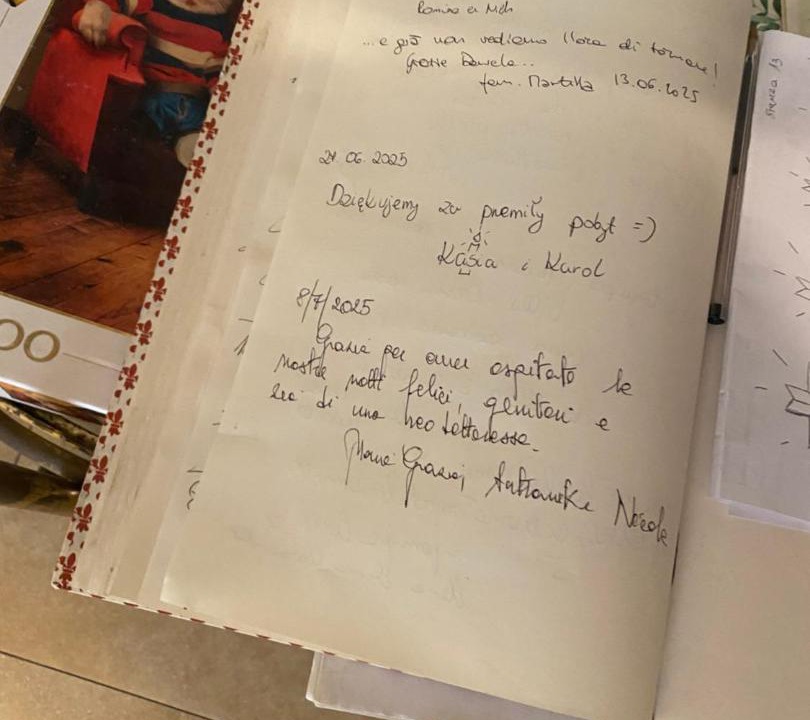 Romina e Mch
... e già non vediamo l'ora di tornare!
Grazie Daniela...
fam. Martilla 13.06.2025
21.06.2025
Dziękujemy za przemiły pobyt =)
Kasia i Karol
8/7/2025
Grazie per aver ospitato le
nostre notti felici, genitori e
zia di una neo dottoressa.
Maria Grazia, Nicola
stanza 13
00